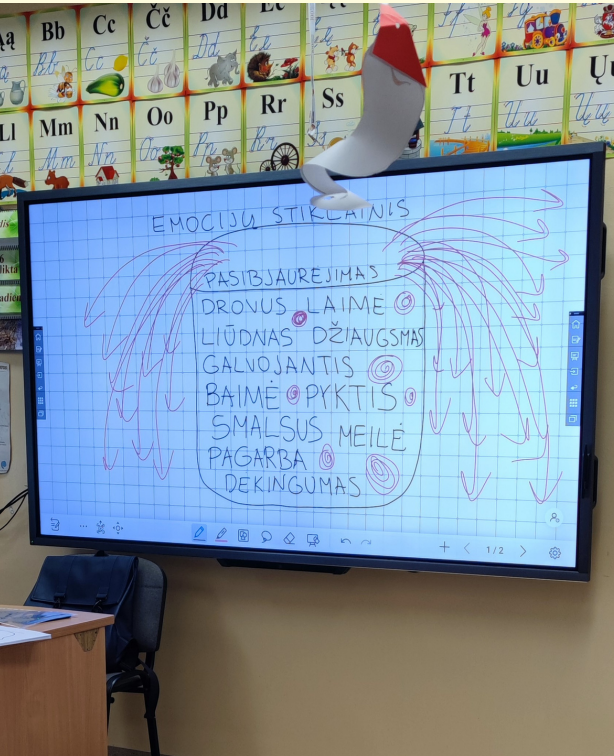 Bb Cc Čč Dd
Ll Mm Nn Oo Pp Rr Ss Tt Uu
EMOCIJŲ STIKLAINIS
PASIBJAUREJIMAS
DRONUS LAIME
LIŪDNAS DŽIAUGSMAS
GALVOJANTIS
BAIMĖ PYKTIS
SMALSUS MEILĖ
PAGARBA
DEKINGUMAS
1/2